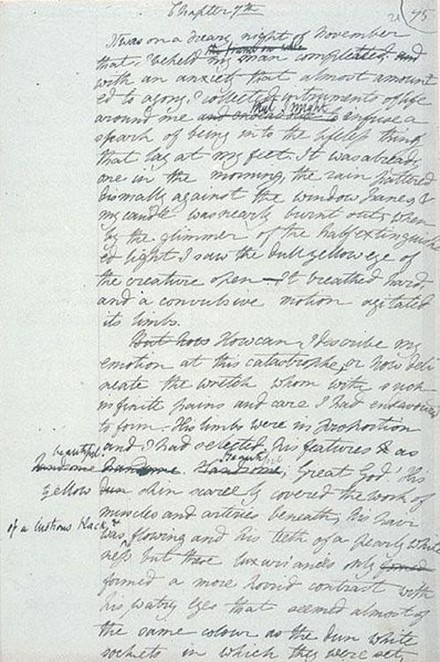 Chapter 7th
75
It was on a dreary night of November
the frame on whic
that I beheld my man compleated, and
with an anxiety that almost amount
ed to agony, I collected instruments of life
that I might
around me and endeavour to infuse a
spark of being into the lifeless thing
that lay at my feet. It was already
one in the morning, the rain pattered
dismally against the window panes, &
my candle was nearly burnt out, when
by the glimmer of the half extinguish
ed light I saw the dull yellow eye of
the creature open—It breathed hard,
and a convulsive motion agitated
its limbs.
But how How can I describe my
emotion at this catastrophe, or how deli
neate the wretch whom with such
infinite pains and care I had endeavoured
to form. His limbs were in proportion
and I had selected his features & as
beautiful
handsome handsome. Handsome, Great God! His
beautiful
yellow dun skin scarcely covered the work of
muscles and arteries beneath; his hair
of a lustrous black, &
was flowing and his teeth of a pearly white
ness but these luxuriancies only formed
formed a more horrid contrast with
his watry eyes that seemed almost of
the same colour as the dun white
sockets in which they were set,